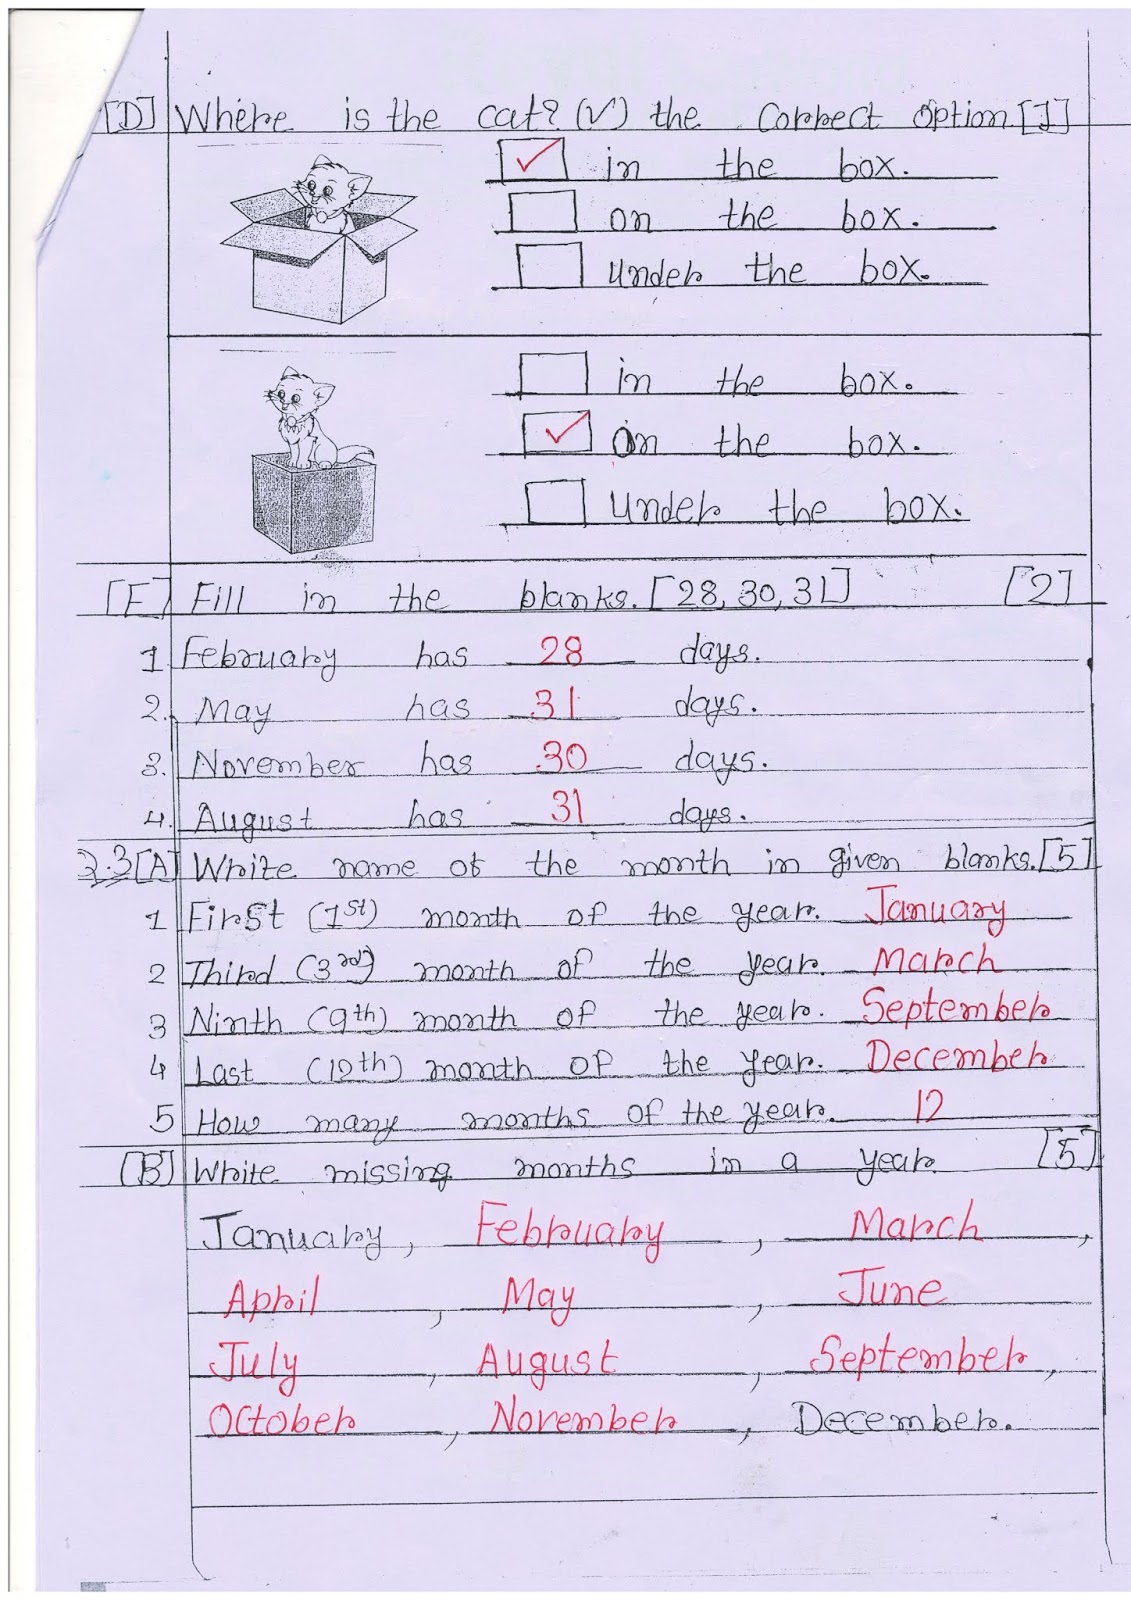 [D] Where is the cat? (✓) the Correct option [1]
✓ in the box.
on the box.
under the box.
in the box.
✓ on the box.
under the box.
[E] Fill in the blanks. [28, 30, 31] [2]
1 February has 28 days.
2. May has 31 days.
3. November has 30 days.
4. August has 31 days.
Q.3 [A] Write name of the month in given blanks. [5]
1 First (1st) month of the year. January
2 Third (3rd) month of the year. March
3 Ninth (9th) month of the year. September
4 Last (12th) month of the year. December
5 How many months of the year. 12
[B] Write missing months in a year. [5]
January, February, March,
April, May, June
July, August, September,
October, November, December.